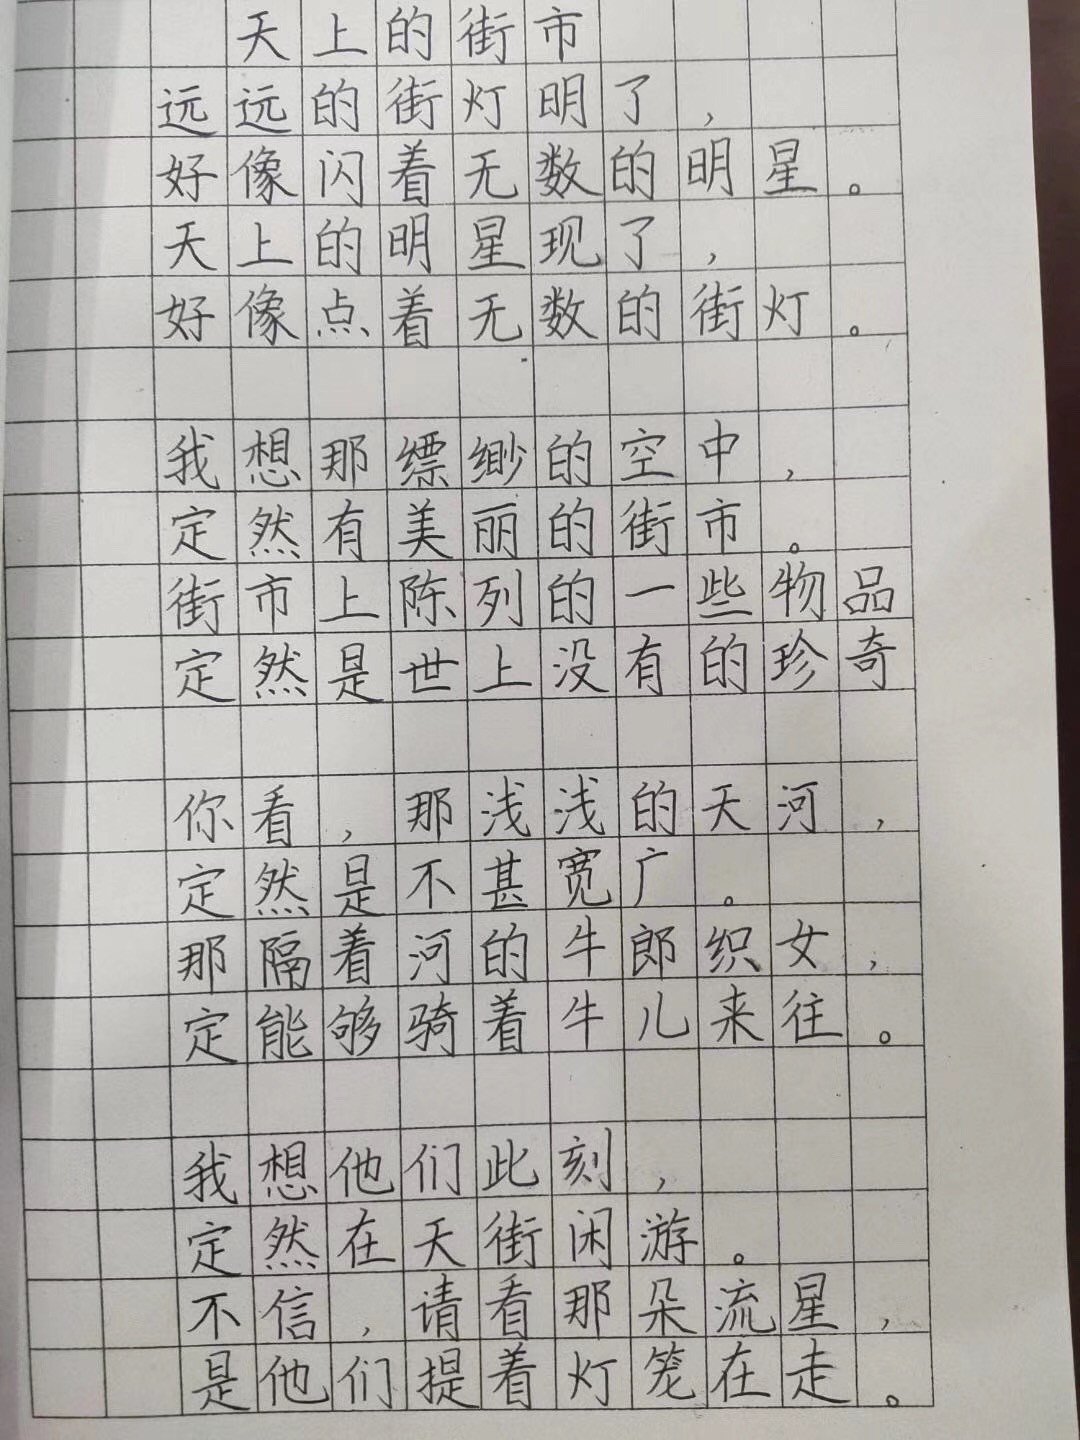 天上的街市
远远的街灯明了，
好像闪着无数的明星。
天上的明星现了，
好像点着无数的街灯。
我想那缥缈的空中，
定然有美丽的街市。
街市上陈列的一些物品
定然是世上没有的珍奇
你看，那浅浅的天河，
定然是不甚宽广。
那隔着河的牛郎织女，
定能够骑着牛儿来往。
我想他们此刻，
定然在天街闲游。
不信，请看那朵流星，
是他们提着灯笼在走。